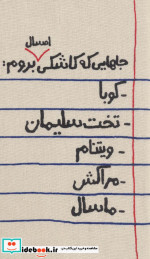 امسال
جاهایی که کاشکی بروم:
- کوبا
- تخت سلیمان
- ویتنام
- مراکش
- ماسال
idebook.ir